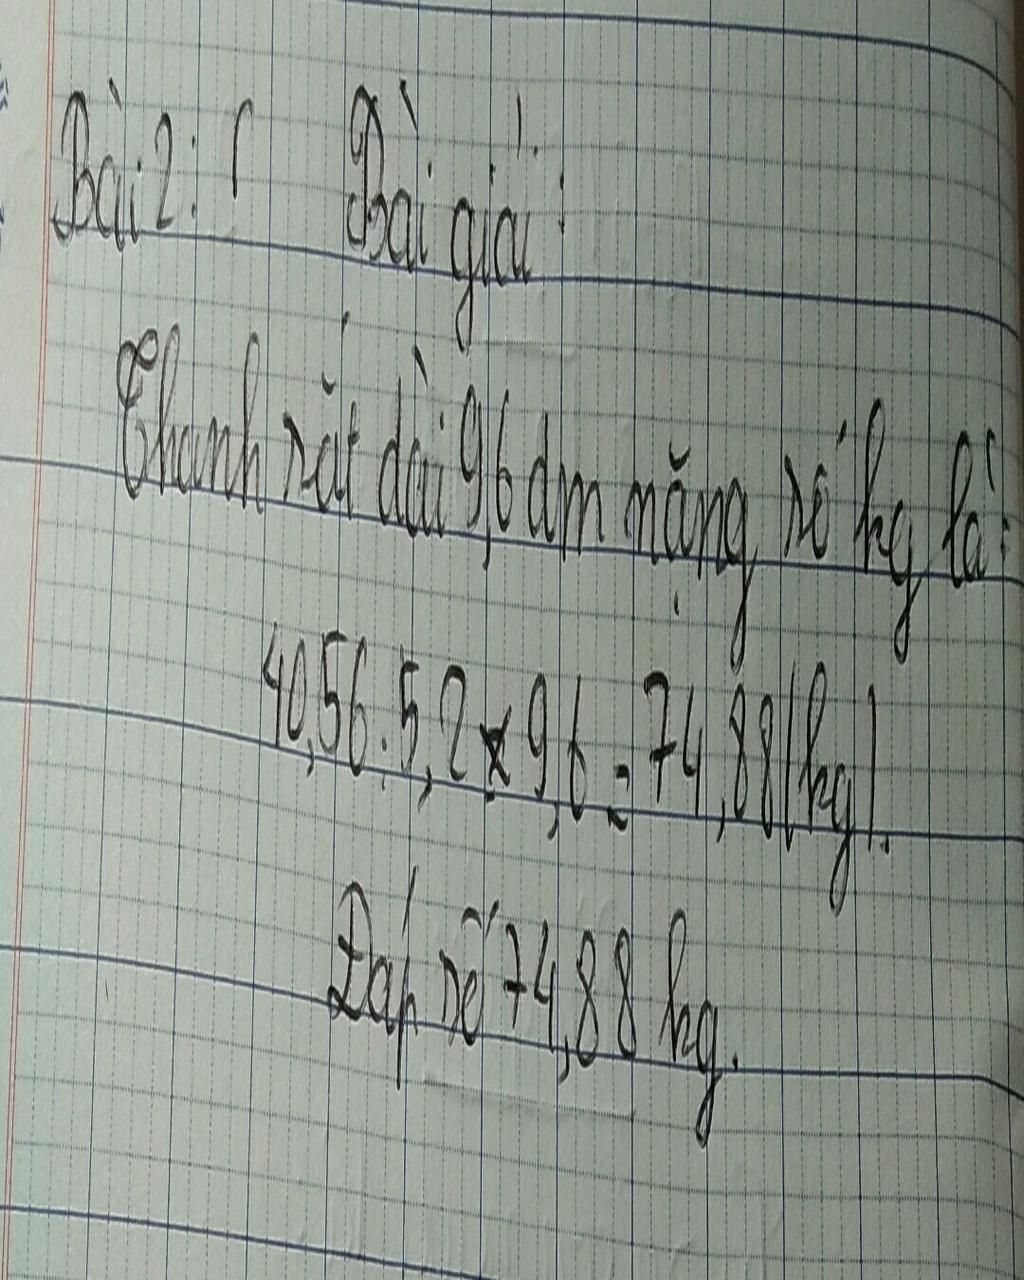 Bài 2: Bài giải:
Thanh sắt dài 9,6 dm nặng số kg là:
40,56 : 5,2 x 9,6 = 74,88 (kg).
Đáp số 74,88 kg.